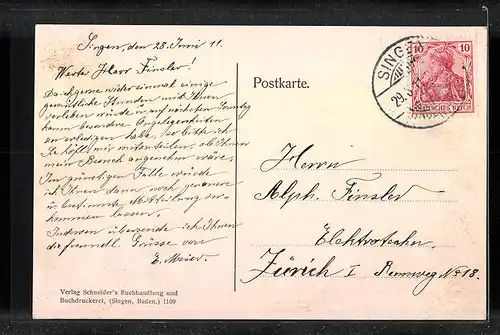 Singen, den 28. Juni 11.
Werter Herr Finsler!
Da ich gerne wieder einmal einige
gemütliche Stunden mit Ihnen
verleben würde u. auf nächsten Sonntag
keine besonderen Angelegenheiten
zu erledigen habe, so bitte ich
Sie höfl. mir mitzuteilen, ob Ihnen
mein Besuch angenehm wäre.
Im günstigen Falle würde
ich Ihnen dann noch genauere
u. bestimmte Mitteilung zu-
kommen lassen.
Indessen übersende ich Ihnen
die freundl. Grüsse von
E. Meier.
Verlag Schneider's Buchhandlung und
Buchdruckerei, (Singen, Baden.) 1109
Postkarte.
10 10
SINGEN
29.
DEUTSCHES REICH
Herrn
Alph. Finsler
Elektrotechn.
Zürich I Rennweg No 18.